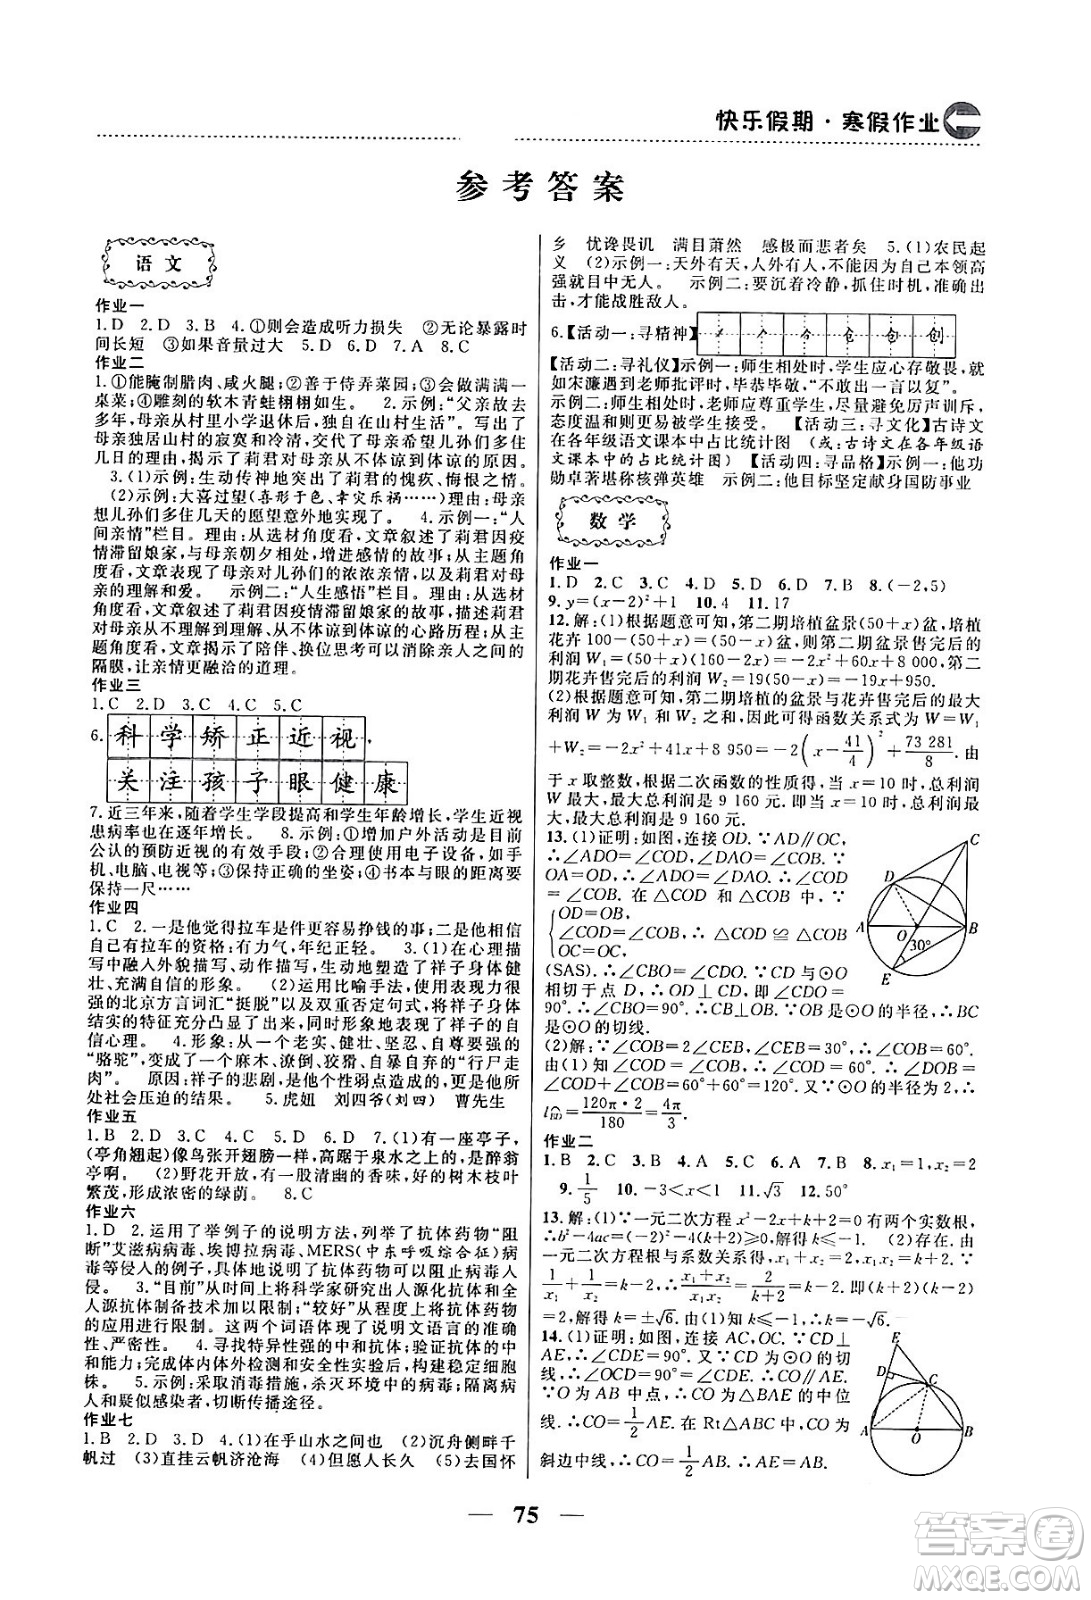 快乐假期·寒假作业
参考答案
语文
作业一
1. D 2. D 3. B 4. ①则会造成听力损失 ②无论暴露时
间长短 ③如果音量过大 5. D 6. D 7. A 8. C
作业二
1. ①能腌制腊肉、咸火腿;②善于侍弄菜园;③能烧一
桌菜;④雕刻的软木青蛙栩栩如生。 2. 示例:“父亲故去
多年,母亲从村里小学退休后,独自在山村生活”。写出了
母亲独居山村的寂寞和母亲希望儿孙们能在身边多住
几日的理由,衬托了莉君对母亲从不体谅到体谅的原因。
3. (1)示例:突出了莉君对母亲的愧疚、悔恨之情。
(2)示例:大喜过望(喜形于色、幸灾乐祸……)理由:母亲
想儿孙们多住几天的愿望意外地实现了。 4. 示例一:“人
间亲情”栏目。理由:从选材角度看,文章写了莉君因疫
情滞留娘家,与母亲朝夕相处、增进感情的故事;从主题角
度看,文章表达了母亲对儿孙的浓浓亲情,以及莉君对母亲
的理解和爱。 示例二:“人生感悟”栏目。理由:从选材
角度看,文章叙述了莉君因疫情滞留娘家的故事,表现了她
对母亲从不理解到理解、从不体谅到体谅的心路历程;从
主题角度看,文章阐发了陪伴、换位思考可以消除亲人之间的
隔膜,让亲情更融洽的道理。
作业三
1. C 2. D 3. D 4. C 5. C
6. 科学矫正近视
关注孩子眼健康
7. 近三年来,随着学生学段提高和学生年龄增长,学生近视
患病率也在逐年增长。 8. 示例:①增加户外活动是目前
公认的预防近视的有效手段;②合理使用电子设备,如手
机、电脑、电视等;③保持正确的坐姿;④书本与眼的距离要
保持一尺……
作业四
1. C 2. 一是他觉得拉车是件更容易挣钱的事;二是他有
自己有拉车的资格:有力气,年纪正轻。 3. (1)在心理描
写中融入外貌描写、动作描写,生动地塑造了祥子身体健
壮、充满自信的形象。 (2)运用比喻手法,再加上表现力很
强的北京方言词汇“挺脱”以及双重否定句式,将祥子身体
结实的特征充分凸显了出来,同时形象地表现了祥子的自
信心理。 4. 形象:从一个老实、健壮、坚忍、自尊自强的
“骆驼”沦落为一个麻木、潦倒、狡猾、自暴自弃的“行尸走
肉”。 原因:祥子的悲剧,是他个性弱点造成的,更是他所
处社会压迫的结果。 5. 虎妞 刘四爷(刘四) 曹先生
作业五
1. B 2. D 3. C 4. D 5. B 6. D 7. (1)有一座亭子,
(亭角翘起)像鸟张开翅膀一样,高踞于泉水之上的,是醉翁
亭啊。 (2)野花开放,有一股清幽的香味,美好的树木枝叶
繁茂,形成浓密的绿荫。 8. C
作业六
1. D 2. 运用了举例子的说明方法,列举了抗体药物“阻
断”艾滋病病毒、埃博拉病毒、MERS(中东呼吸综合征)病毒
等侵人的例子,具体地说明了抗体药物可以阻止病毒入
侵。 3. “目前”从时间上将科学家研究出人源化抗体和全
人源抗体制备技术加以限制;“较好”从程度上将抗体药物
的应用进行限制。这两个词语体现了说明文语言的准确
性、严密性。 4. 寻找特异性强的中和抗体;验证抗体的中
和能力;完成体内体外检测和安全性实验;构建稳定细胞
株。 5. 示例:采取消毒措施,杀灭环境中的病毒;隔离病人
和疑似感染者,切断传播途径。
作业七
1. B 2. D 3. D 4. (1)在乎山水之间也 (2)沉舟侧畔千
帆过 (3)直挂云帆济沧海 (4)但愿人长久 (5)去国怀
乡 忧谗畏讥 满目萧然 感极而悲者矣 5. (1)农民起
义 (2)示例一:天外有天,人外有人,不能自己本领高
强就目中无人。 示例二:要沉着冷静,抓住时机,准确出
击,才能战胜敌人。
6.【活动一:寻精神】 创
【活动二:寻礼仪】示例一:师生相处时,学生应心存敬畏,比
如宋濂遇到老师批评时,毕恭毕敬,“不敢出一言以复”。
示例二:师生相处时,老师应尊重学生,不应严厉训斥,
态度温和则更易被学生接受。【活动三:寻文化】古诗文
在各年级语文课本中占比统计图(或:古诗文在各年级语
文课本中的占比统计图)【活动四:寻品格】示例一:他功
勋卓著堪称核弹英雄 示例二:他目标坚定献身国防事业
数学
作业一
1. D 2. C 3. C 4. B 5. D 6. D 7. B 8. (−2,5)
9. y=(x−2)²+1 10. 4 11. 17
12. 解:(1)根据题意可知,第二期培植盆景(50+x)盆,培植
花卉 100−(50+x)=(50−x)盆,则第二期盆景售完后的
利润 W₁=(50+x)(160−2x)=−2x²+60x+8 000,第二
期花卉售完后的利润 W₂=19(50−x)=−19x+950.
(2)根据题意可知,第二期培植的盆景与花卉售完后的最大
利润 W 为 W₁ 和 W₂ 之和,可得函数关系式为 W=W₁
+W₂=−2x²+41x+8 950=−2(x−41/4)²+73 281/8. 由
于 x 取整数,根据二次函数的性质得,当 x=10 时,总利润
W 最大,最大利润是 9 160 元,∴当 x=10 时,总利润 W
最大,最大总利润是 9 160 元.
13. (1)证明:如图,连接 OD. ∵AD∥OC,
∴∠ADO=∠COD,∠DAO=∠COB. ∵
OA=OD,∴∠ADO=∠DAO,∴∠COD
=∠COB. 在△COD 与△COB 中,∵
{OD=OB, ∠COD=∠COB, OC=OC, ∴△COD≌△COB
(SAS). ∴∠CBO=∠CDO. ∵CD 与⊙O
相切于点 D,∴OD⊥CD,∴∠CDO=
90°. ∴∠CBO=90°. ∴CB⊥OB. ∵OB 是⊙O 的半径,∴BC
是⊙O 的切线.
(2)解:∵∠COB=2∠CEB,∠CEB=30°,∴∠COB=60°.
由(1)知∠COD=∠COB,∴∠COD=60°. ∴∠DOB=
∠COB+∠COD=60°+60°=120°. ∵⊙O 的半径为 2,∴
l=120π·2/180=4π/3.
作业二
1. B 2. C 3. B 4. A 5. C 6. A 7. B 8. x₁=1,x₂=2
9. 1/5 10. −3<x<1 11. √3 12. 50°
13. 解:(1)∵一元二次方程 x²−2x+k+2=0 有两个实数根,
∴b²−4ac=(−2)²−4(k+2)≥0,∴k≤−1. (2)存在. 由
一元二次方程根与系数关系得,x₁+x₂=2,x₁x₂=k+2. ∵
1/x₁+1/x₂=k−2,∴(x₁+x₂)/x₁x₂=2/(k+2)=k−2,∴(k+2)(k−2)
=2,解得 k=±√6. 由(1)知 k≤−1,∴k=−√6.
14. (1)证明:如图,连接 AC,OC. ∵CD⊥
AE,∴∠CDE=90°. ∵CD 是⊙O 的切
线,∴∠OCD=90°. ∴∠OCD=∠CDE. ∴OC∥AE.
∵O 为 AB 中点,∴CO 是△BAE 的中位
线. ∴CO=1/2AE. 在 Rt△ABC 中,CO 为
斜边中线,∴CO=1/2AB,∴AE=AB.
C
D
A
O
B
30°
E
E
D
C
A
O
B
75
答案圈
MXQE.COM